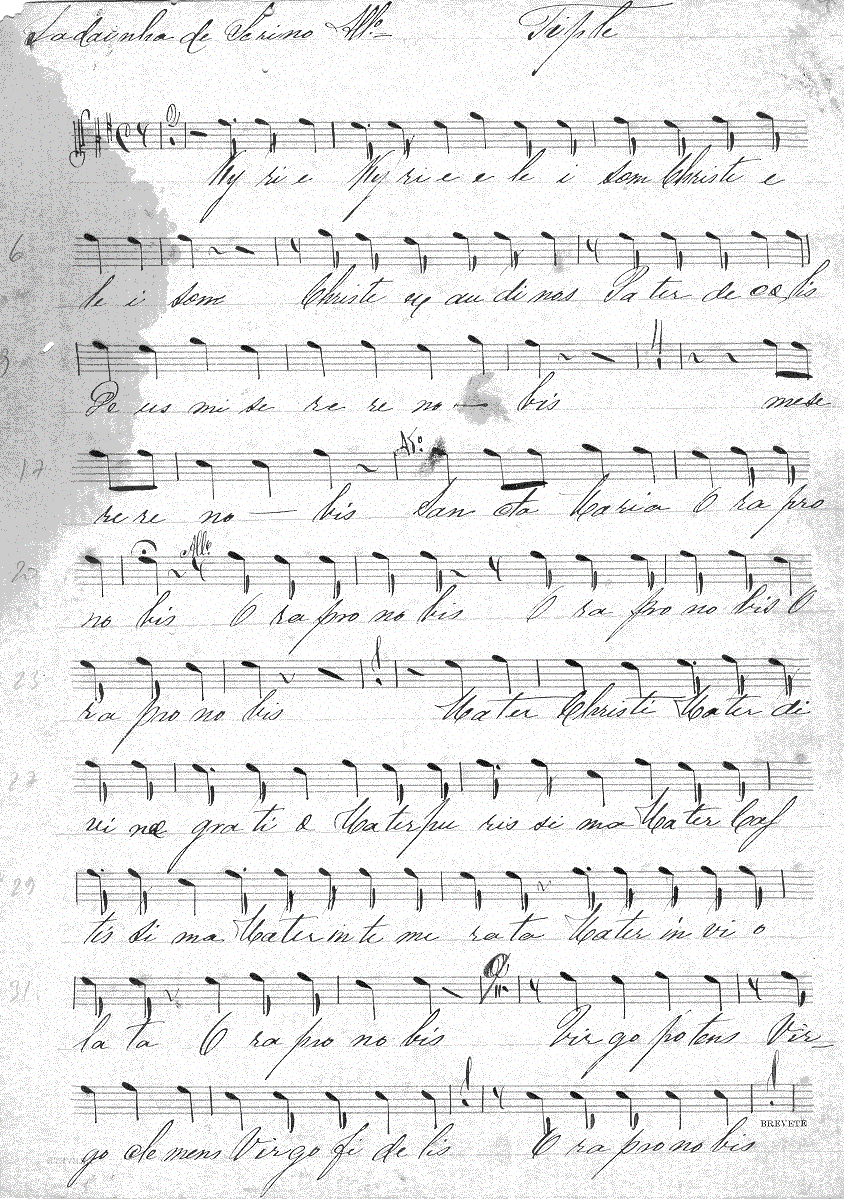 Ladainha de Serino All.º Tiple
Ky ri e Ky ri e e le i som Christe e
6
le i som Christe ex au di nos Pa ter de cœ lis
De us mi se re re no — bis mese
17
re re no — bis San cta Maria O ra pro
20 All.º
no bis O ra pro no bis O ra pro no bis O
25
ra pro no bis Mater Christi Mater di
27
vi næ gra ti æ Mater pu ris si ma Mater Cas
29
tis si ma Mater in te me ra ta Mater in vi o
31
la ta O ra pro no bis Vir go potens Vir_
go cle mens Vir go fi de lis O ra pro no bis
BREVETÉ